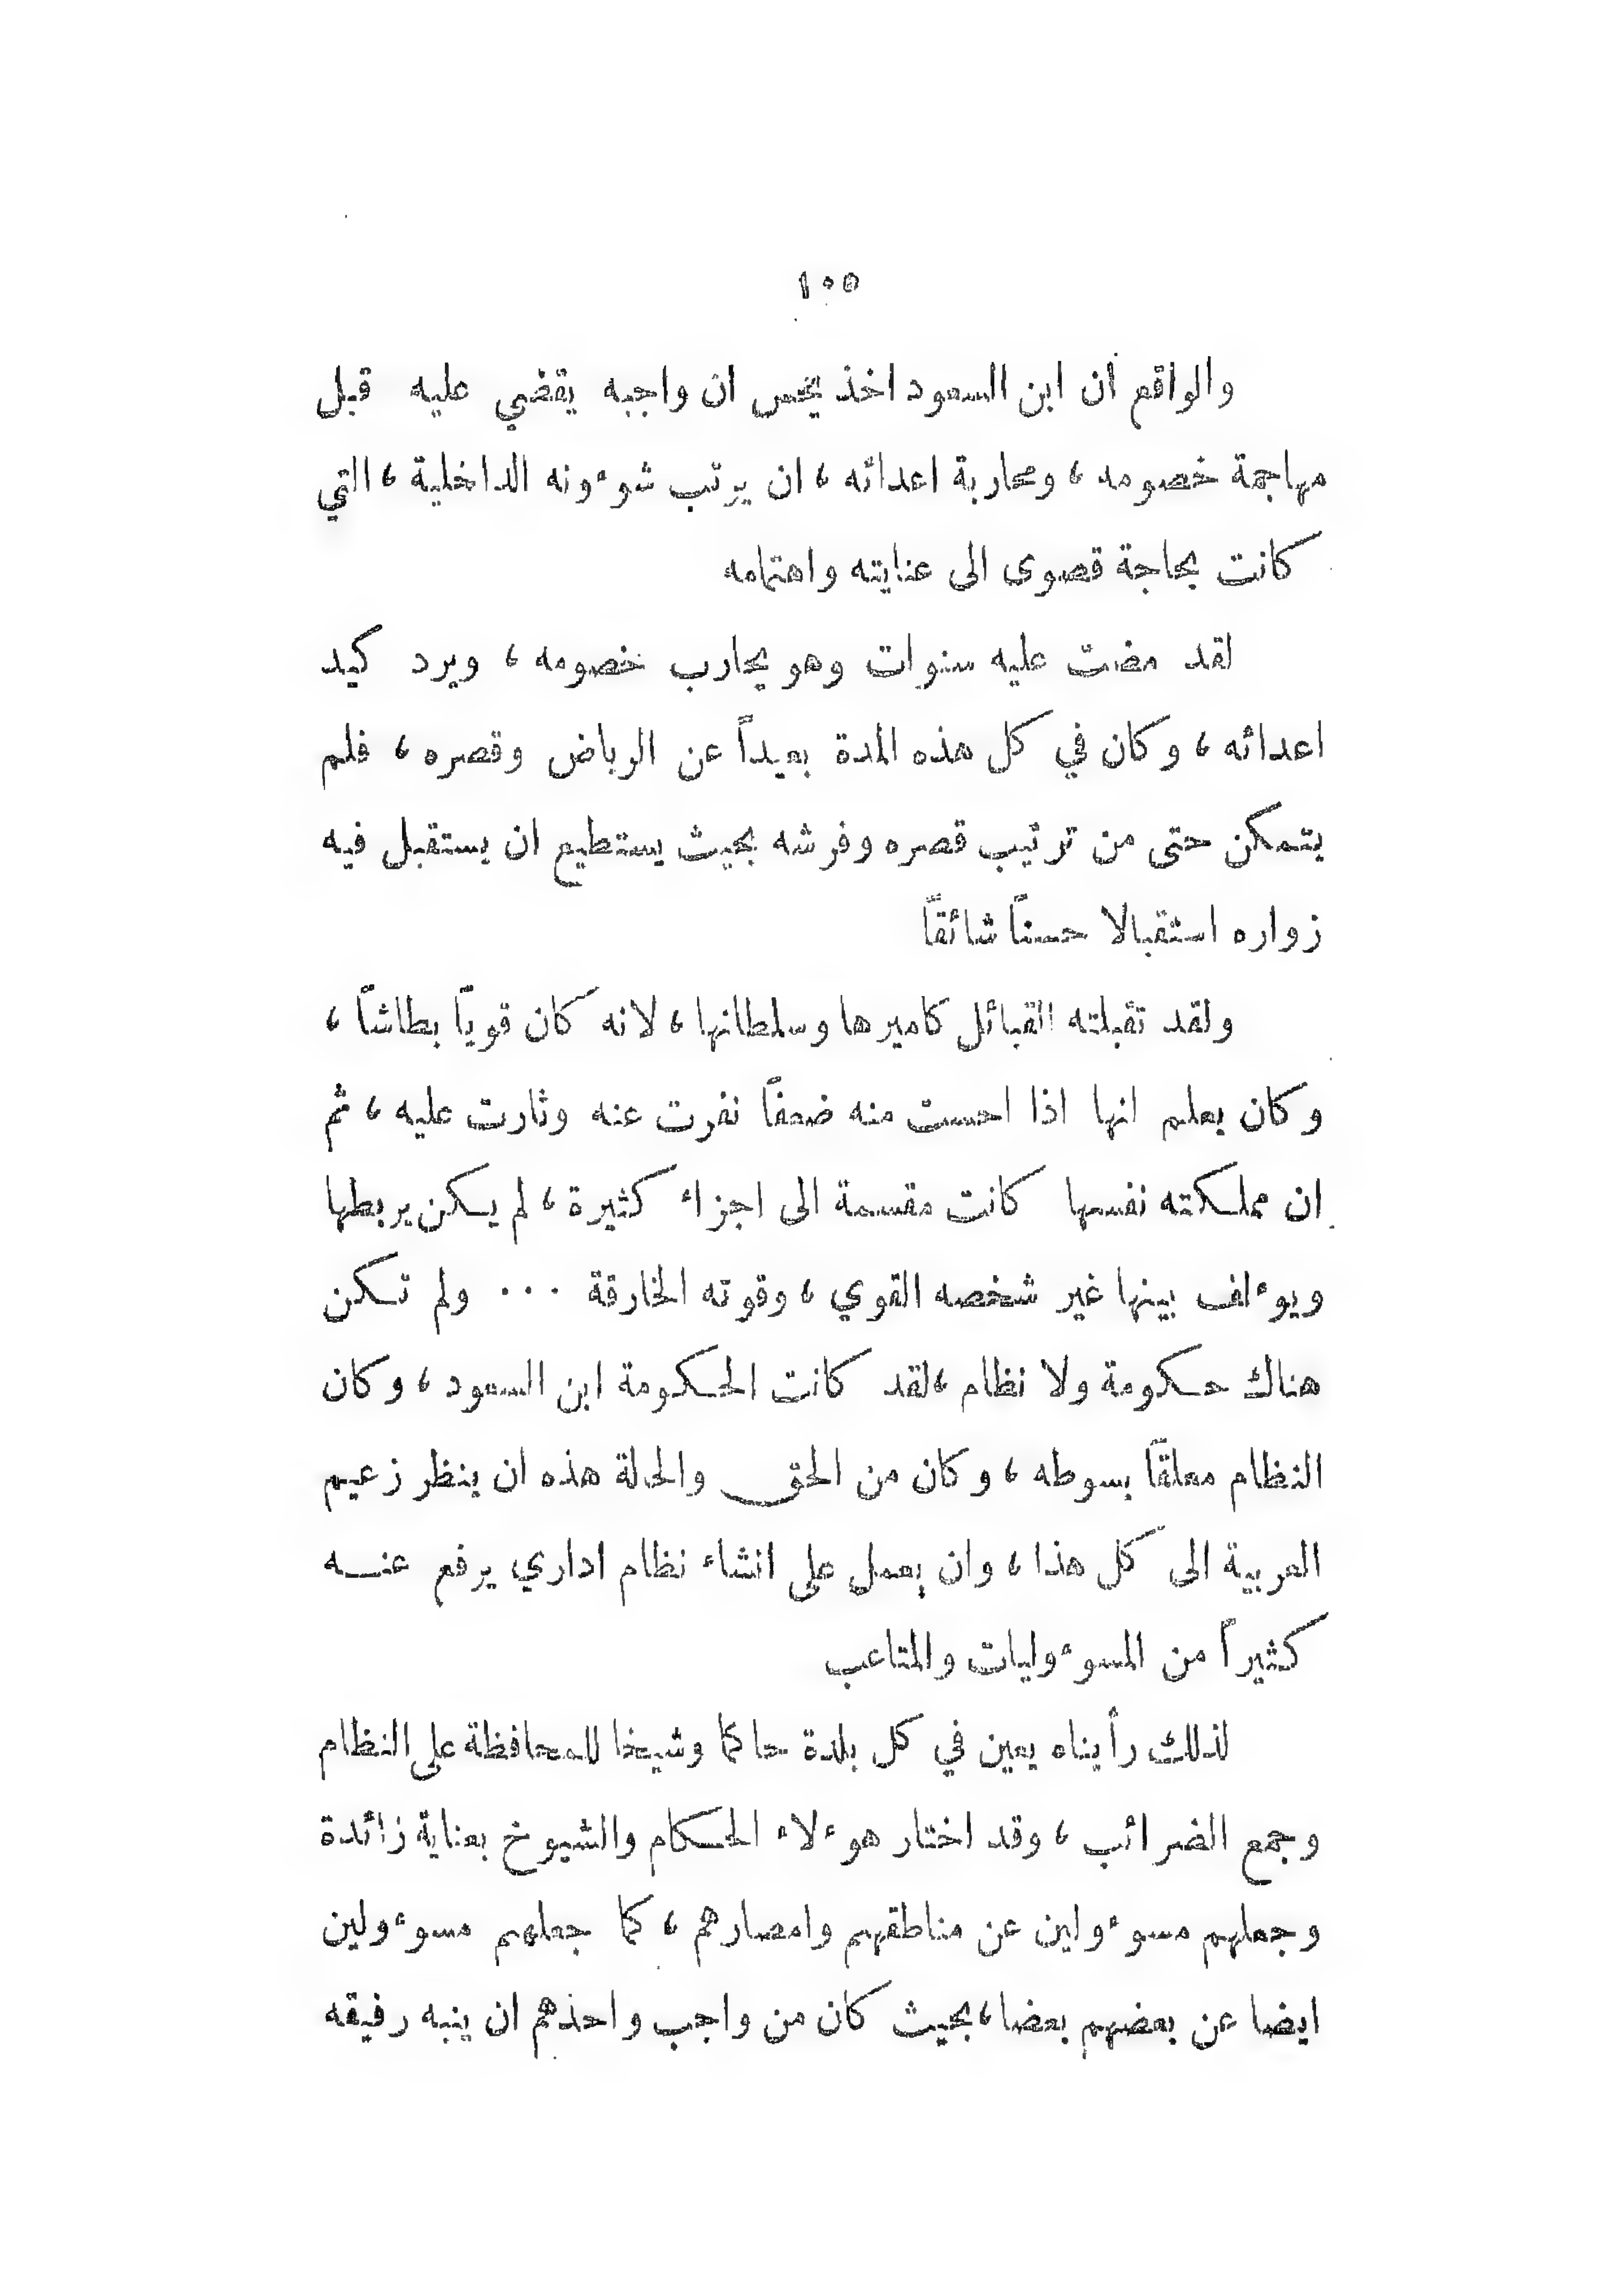 ١٠٥
والواقع ان ابن السعود اخذ يحس ان واجبه يقضي عليه قبل
مهاجمة خصومه ، ومحاربة اعدائه ، ان يرتب شوءونه الداخلية ، التي
كانت بحاجة قصوى الى عنايته واهتمامه
لقد مضت عليه سنوات وهو يحارب خصومه ، ويرد كيد
اعدائه ، وكان في كل هذه المدة بعيداً عن الرياض وقصره ، فلم
يتمكن حتى من ترتيب قصره وفرشه بحيث يستطيع ان يستقبل فيه
زواره استقبالا حسناً شائقاً
ولقد تقبلته القبائل كاميرها وسلطانها ، لانه كان قوياً بطاشاً ،
وكان يعلم انها اذا احست منه ضعفاً نفرت عنه وثارت عليه ، ثم
ان مملكته نفسها كانت مقسمة الى اجزاء كثيرة ، لم يكن يربطها
ويوءلف بينها غير شخصه القوي ، وقوته الخارقة ... ولم تكن
هناك حكومة ولا نظام ، لقد كانت الحكومة ابن السعود ، وكان
النظام معلقاً بسوطه ، وكان من الحق والحالة هذه ان ينظر زعيم
العربية الى كل هذا ، وان يعمل على انشاء نظام اداري يرفع عنه
كثيراً من المسوءوليات والمتاعب
لذلك رأيناه يعين في كل بلدة حاكما وشيخا للمحافظة على النظام
وجمع الضرائب ، وقد اختار هوءلاء الحكام والشيوخ بعناية زائدة
وجعلهم مسوءولين عن مناطقهم وامصارهم ، كما جعلهم مسوءولين
ايضا عن بعضهم بعضا ، بحيث كان من واجب واحدهم ان ينبه رفيقه